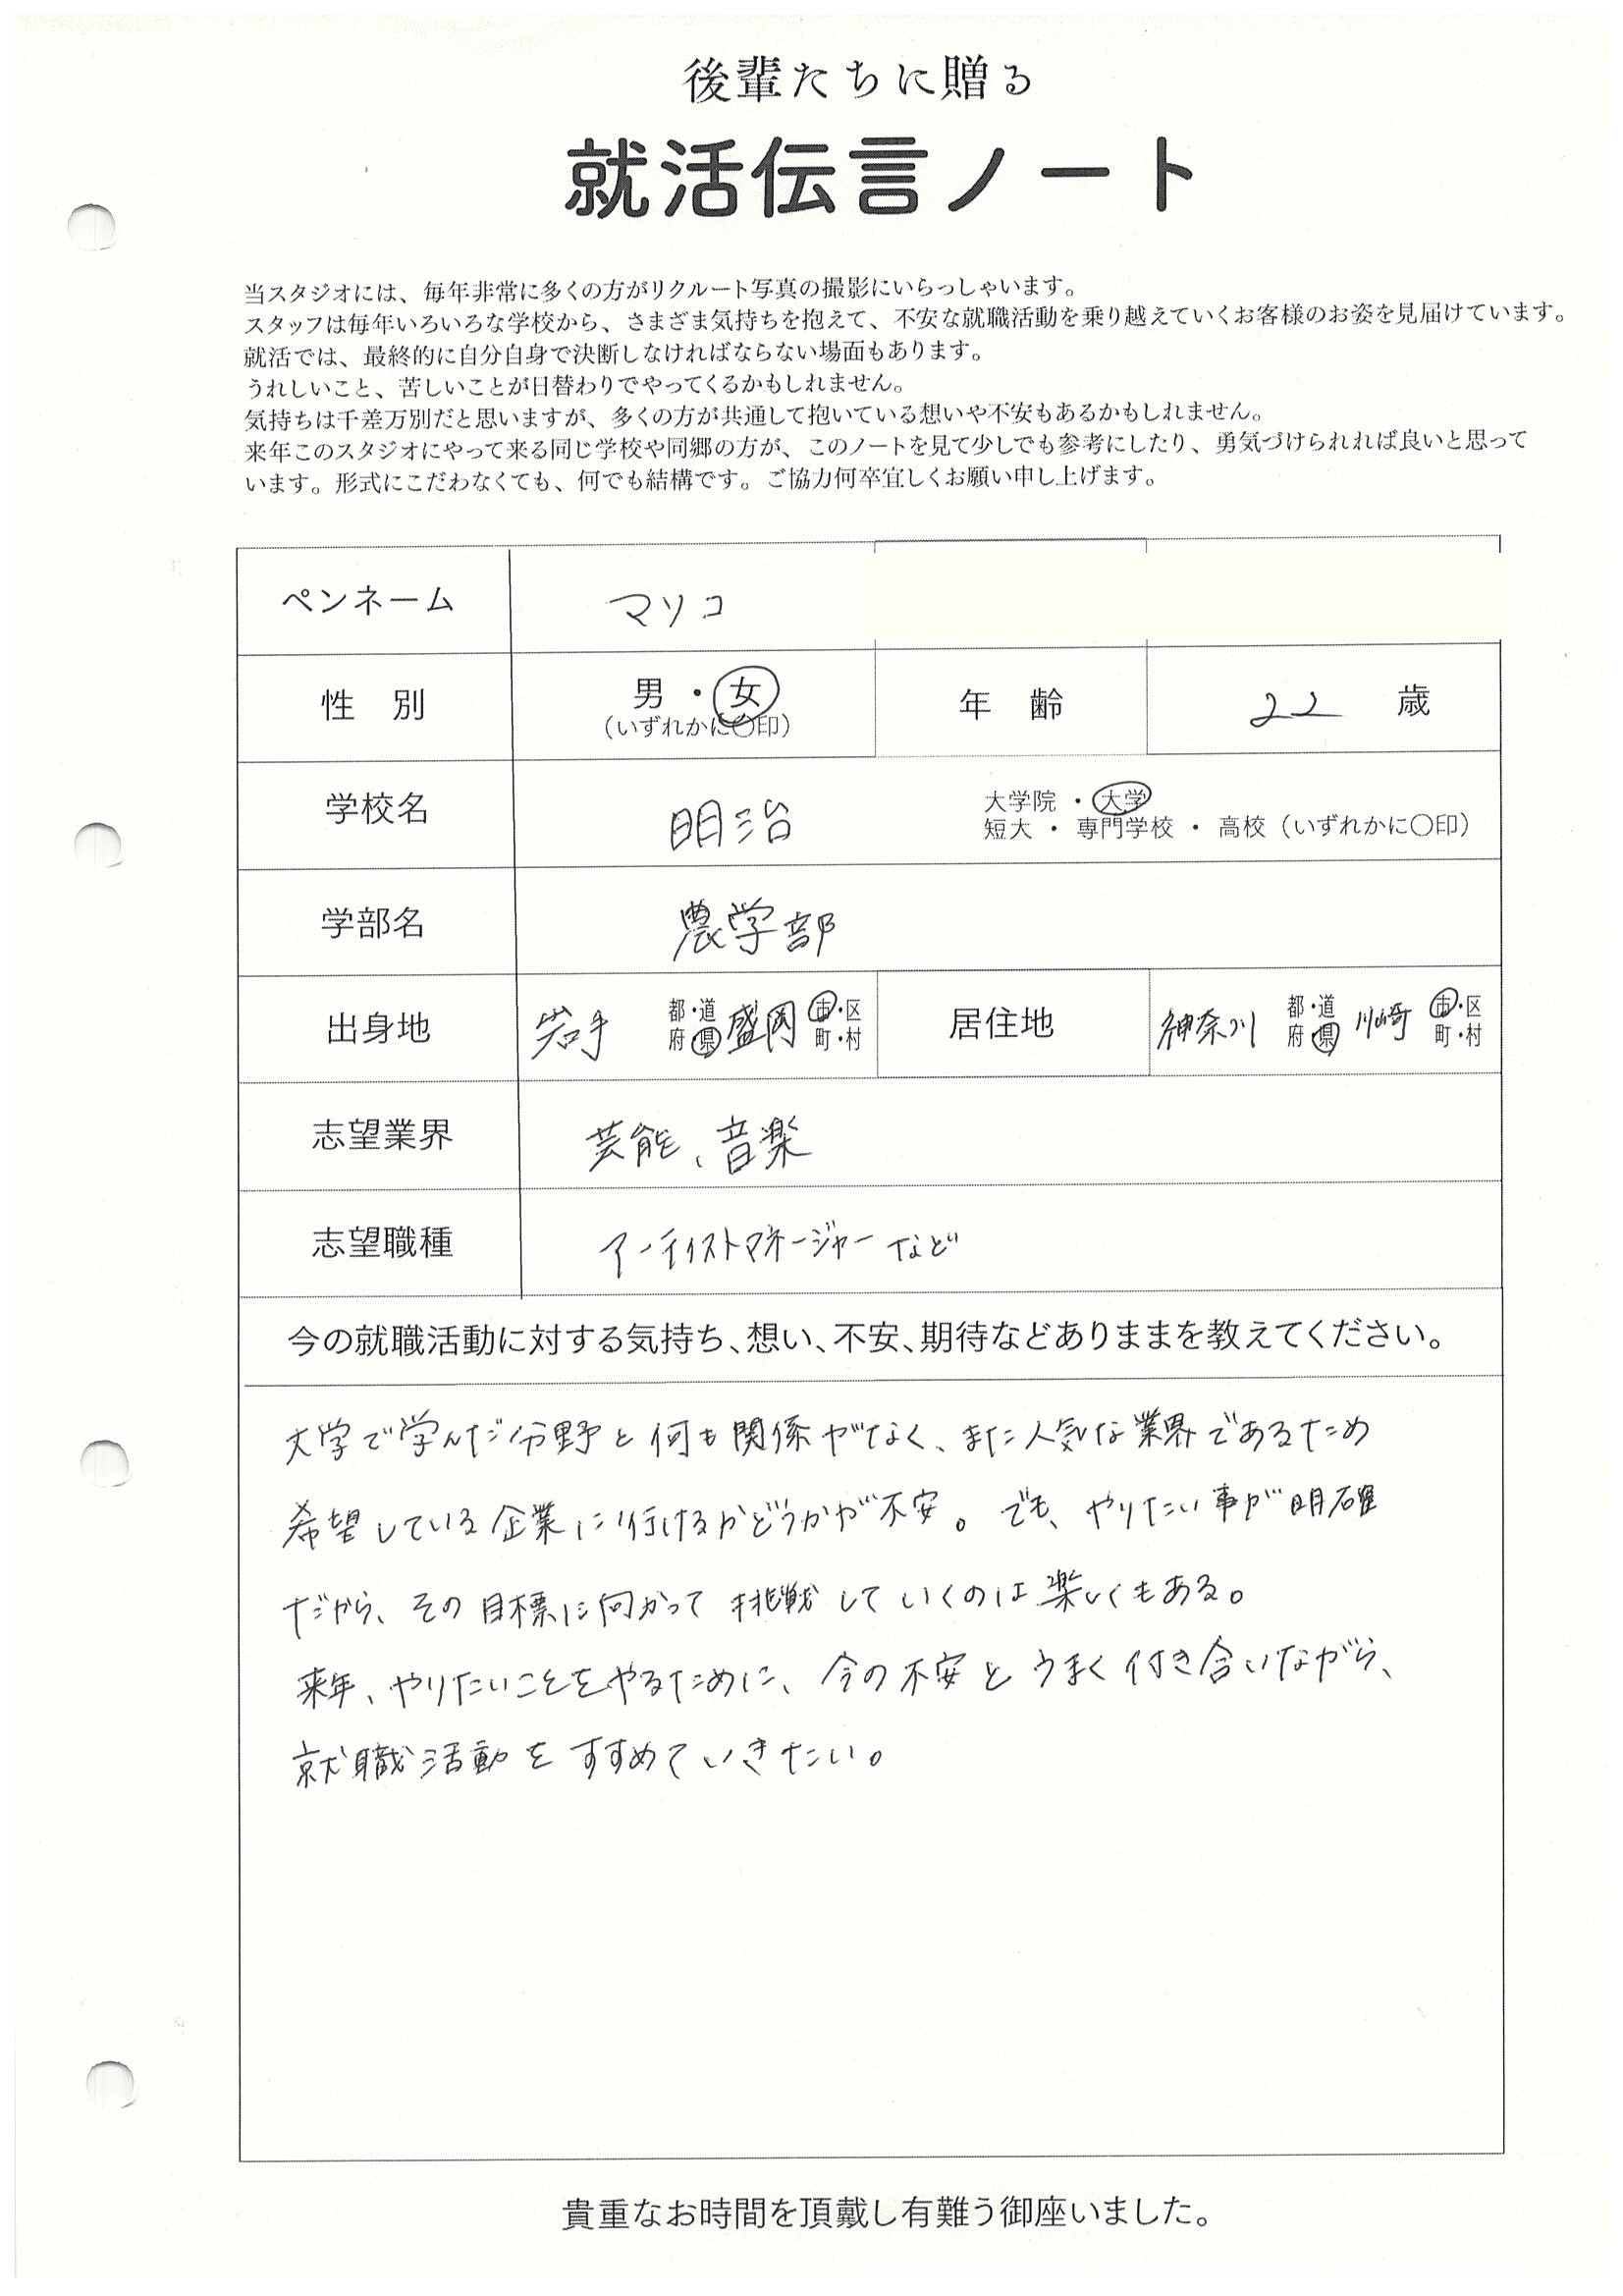 後輩たちに贈る
就活伝言ノート
当スタジオには、毎年非常に多くの方がリクルート写真の撮影にいらっしゃいます。
スタッフは毎年いろいろな学校から、さまざま気持ちを抱えて、不安な就職活動を乗り越えていくお客様のお姿を見届けています。
就活では、最終的に自分自身で決断しなければならない場面もあります。
うれしいこと、苦しいことが日替わりでやってくるかもしれません。
気持ちは千差万別だと思いますが、多くの方が共通して抱いている想いや不安もあるかもしれません。
来年このスタジオにやって来る同じ学校や同郷の方が、このノートを見て少しでも参考にしたり、勇気づけられれば良いと思って
います。形式にこだわなくても、何でも結構です。ご協力何卒宜しくお願い申し上げます。
ペンネーム マソコ
性 別 男 ・ 女 (いずれかに〇印) 年 齢 22 歳
学校名 明治 大学院 ・ 大学
短大 ・ 専門学校 ・ 高校 (いずれかに〇印)
学部名 農学部
出身地 岩手 都・道 府・県 盛岡 市・区 町・村 居住地 神奈川 都・道 府・県 川崎 市・区 町・村
志望業界 芸能、音楽
志望職種 アーティストマネージャーなど
今の就職活動に対する気持ち、想い、不安、期待などありままを教えてください。
大学で学んだ分野と何も関係がなく、また人気な業界であるため
希望している企業に行けるかどうかが不安。でも、やりたい事が明確
だから、その目標に向かって挑戦していくのは楽しくもある。
来年、やりたいことをやるために、今の不安とうまく付き合いながら、
就職活動をすすめていきたい。
貴重なお時間を頂戴し有難う御座いました。